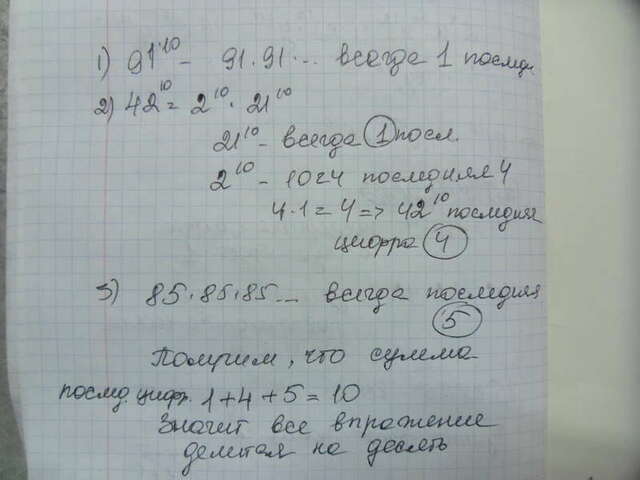 1) 91¹⁰ - 91·91·... всегда 1 последн.
2) 42¹⁰ = 2¹⁰ · 21¹⁰
21¹⁰ - всегда 1 посл.
2¹⁰ - 1024 последняя 4
4·1 = 4 => 42¹⁰ последняя
цифра 4
3) 85·85·85... всегда последняя
5
Получим, что сумма
послед. цифр. 1+4+5=10
Значит все впражение
делится на десять